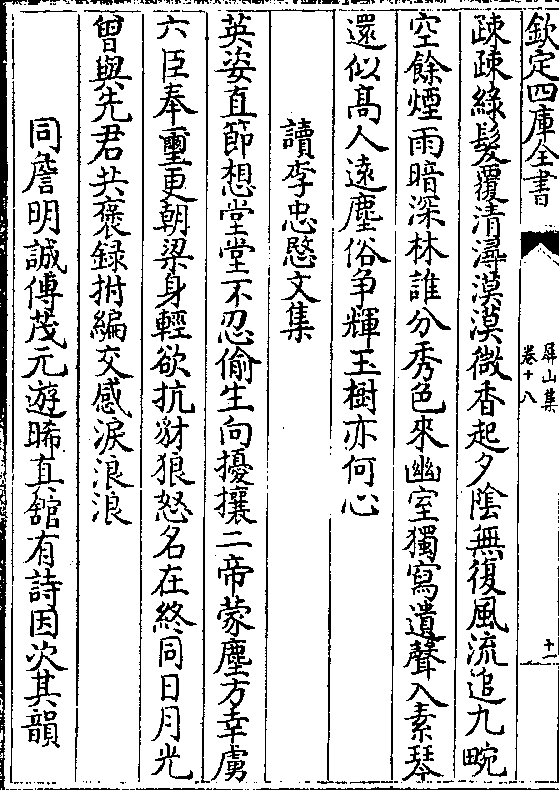 欽定四庫全書
屏山集
卷十八
十一
疎疎綠髮覆清潯漠漠微香起夕陰無復風流追九畹
空餘煙雨暗深林誰分秀色來幽室獨寫遺聲入素琴
還似髙人遠塵俗争輝玉樹亦何心
讀李忠愍文集
英姿直節想堂堂不忍偷生向擾攘二帝蒙塵方幸虜
六臣奉璽更朝梁身輕欲抗豺狼怒名在終同日月光
曾與先君共褒録拊編交感淚浪浪
同詹明誠傅茂元遊晞真館有詩因次其韻